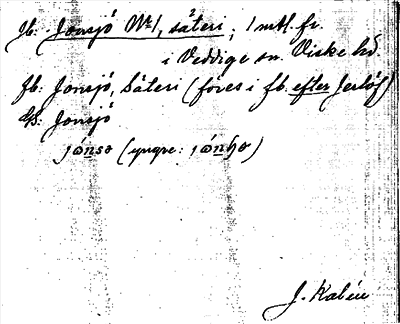 Jb: Jonsjö Nr 1, säteri, 1 mtl. fr.
i Veddige sn. Viske hd.
fb: Jonsjö, Säteri (föres i fb. efter Jerlöf)
Gk: Jonsjö
jónsə (yngre: jónɧə)
J. Kalén